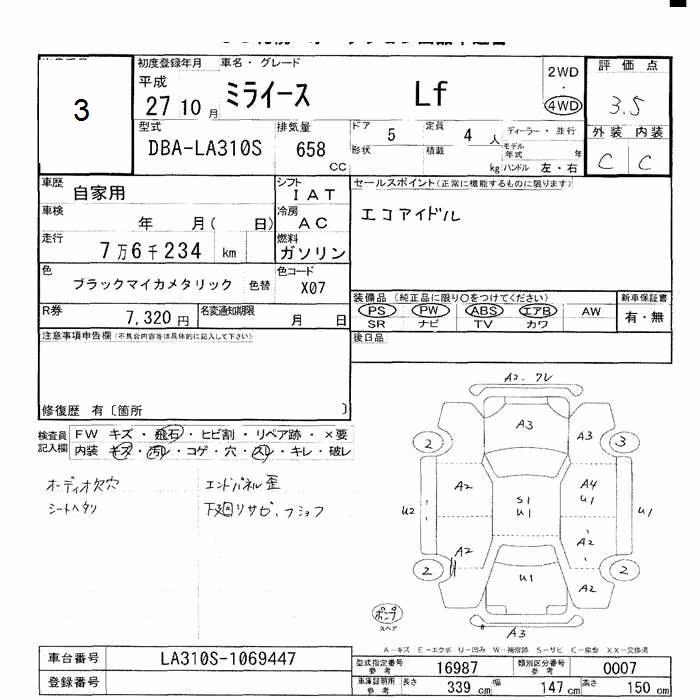 3
初度登録年月 車名・グレード
平成
27 10 月 ミライース Lf
2WD
・
4WD
評価点
3.5
外装 内装
C C
型式 排気量 ドア 5 定員 4 人 ディーラー・並行
DBA-LA310S 658 CC
形状 積載 kg モデル年式 年
ハンドル 左・右
車歴 自家用 シフト IAT
セールスポイント(正常に機能するものに限ります)
エコアイドル
車検 年 月( 日) 冷房 AC
走行 7万6千234 km 燃料 ガソリン
色 ブラックマイカメタリック 色替 色コード X07
装備品 (純正品に限り○をつけてください) 新車保証書
PS PW ABS エアB AW 有・無
SR ナビ TV カワ
R券 7,320 円 名変通知期限 月 日
注意事項申告欄(不具合内容等は具体的に記入して下さい)
後日品
修復歴 有〔箇所 〕
検査員記入欄 FW キズ・飛石・ヒビ割・リペア跡・×要
内装 キズ・汚レ・コゲ・穴・スレ・キレ・破レ
オーディオ欠穴 エンドパネル歪
シートヘタリ 下廻リサビ、フショク
A2. ワレ
A3
2 A3 3
A2 A4
U1
U2 S1
U1 U1
A2 A2
2 U1 2
A2
ポンプ
スペア
A3
A-キズ E-エクボ U-凹み W-補修跡 S-サビ C-腐食 XX-交換済
車台番号 LA310S-1069447
登録番号
型式指定番号 参考 16987 類別区分番号 参考 0007
車庫証明用 参考 長さ 339 cm 幅 147 cm 高さ 150 cm